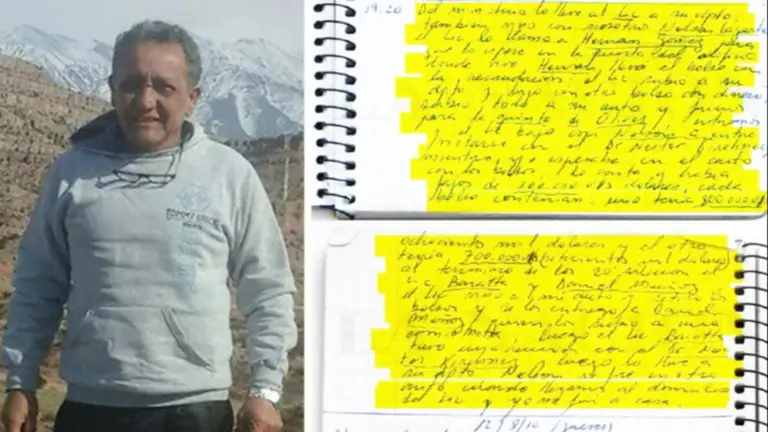 19.20 Del ministerio lo lleve al Lic a su dpto,
tambien vino con nosotros Nelson Lazarte
el Lic lo llamo a Hernan Gomez para
que lo espere en la puerta del edificio
donde vive Hernan llevo el bolso con
la recaudacion; el Lic subio a su
dpto y bajo con otro bolso con dinero,
todo a mi auto y fuimos
para la quinta de Olivos, entramos
y el Lic bajo con Nelson a entre
vistarse con el Dr Nestor Kirchner
mientras yo esperaba en el auto
con los bolsos. Lo conte y habia
fajos de 100.000 dolares, cada
bolso contenian: uno tenia 800.000
ochociento mil dolares y el otro
tenia 700.000 (setecientos mil dolares)
al termino de los 20 minutos el
Lic, Baratta y Daniel Muñoz
el Lic vino a mi auto y retiro los
bolsos y se los entrego a Daniel
Muñoz quien los subio a una
camioneta. Luego el Lic Baratta
tuvo una reunion con el Dr Nes
tor Kirchner luego lo lleve a
su dpto Nelson se fue en otro
auto cuando llegamos al domicilio
del Lic y yo me fui a casa.
12/8/10 (Jueves)